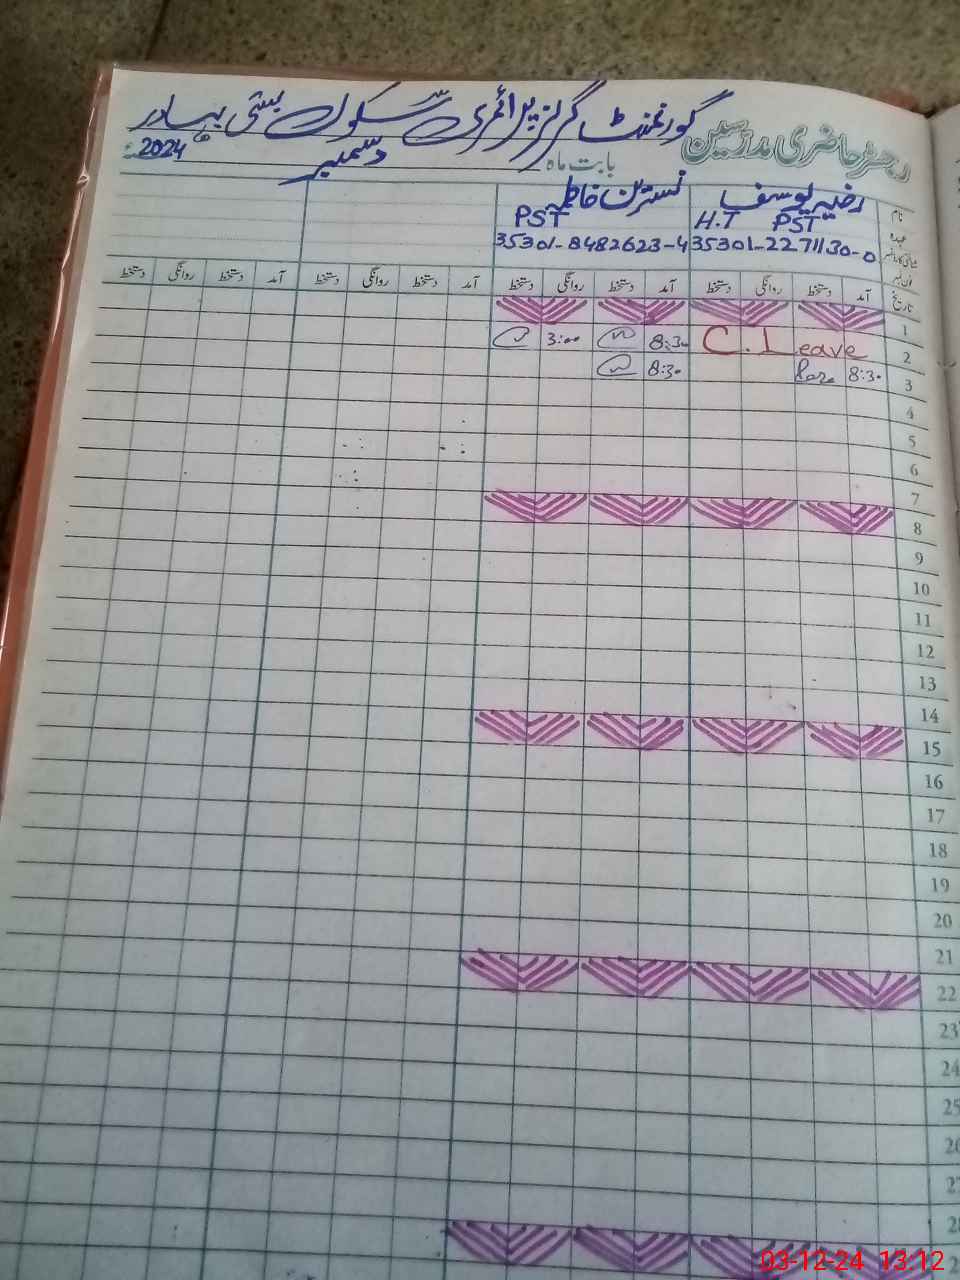 گورنمنٹ گرلز پرائمری سکول بستی بہادر
رجسٹر حاضری مدرسین
بابت ماہ دسمبر 2024ء
نام رضیہ یوسف نسترین فاطمہ
عہدہ H.T PST PST
شناختی کارڈ نمبر 35301-2271130-0 35301-8482623-4
فون نمبر
تاریخ آمد دستخط روانگی دستخط آمد دستخط روانگی دستخط آمد دستخط روانگی دستخط آمد دستخط روانگی دستخط
1
2 C. Leave 8:30 3:00
3 8:30 8:30
4
5
6
7
8
9
10
11
12
13
14
15
16
17
18
19
20
21
22
23
24
25
26
27
28
03-12-24 13:12